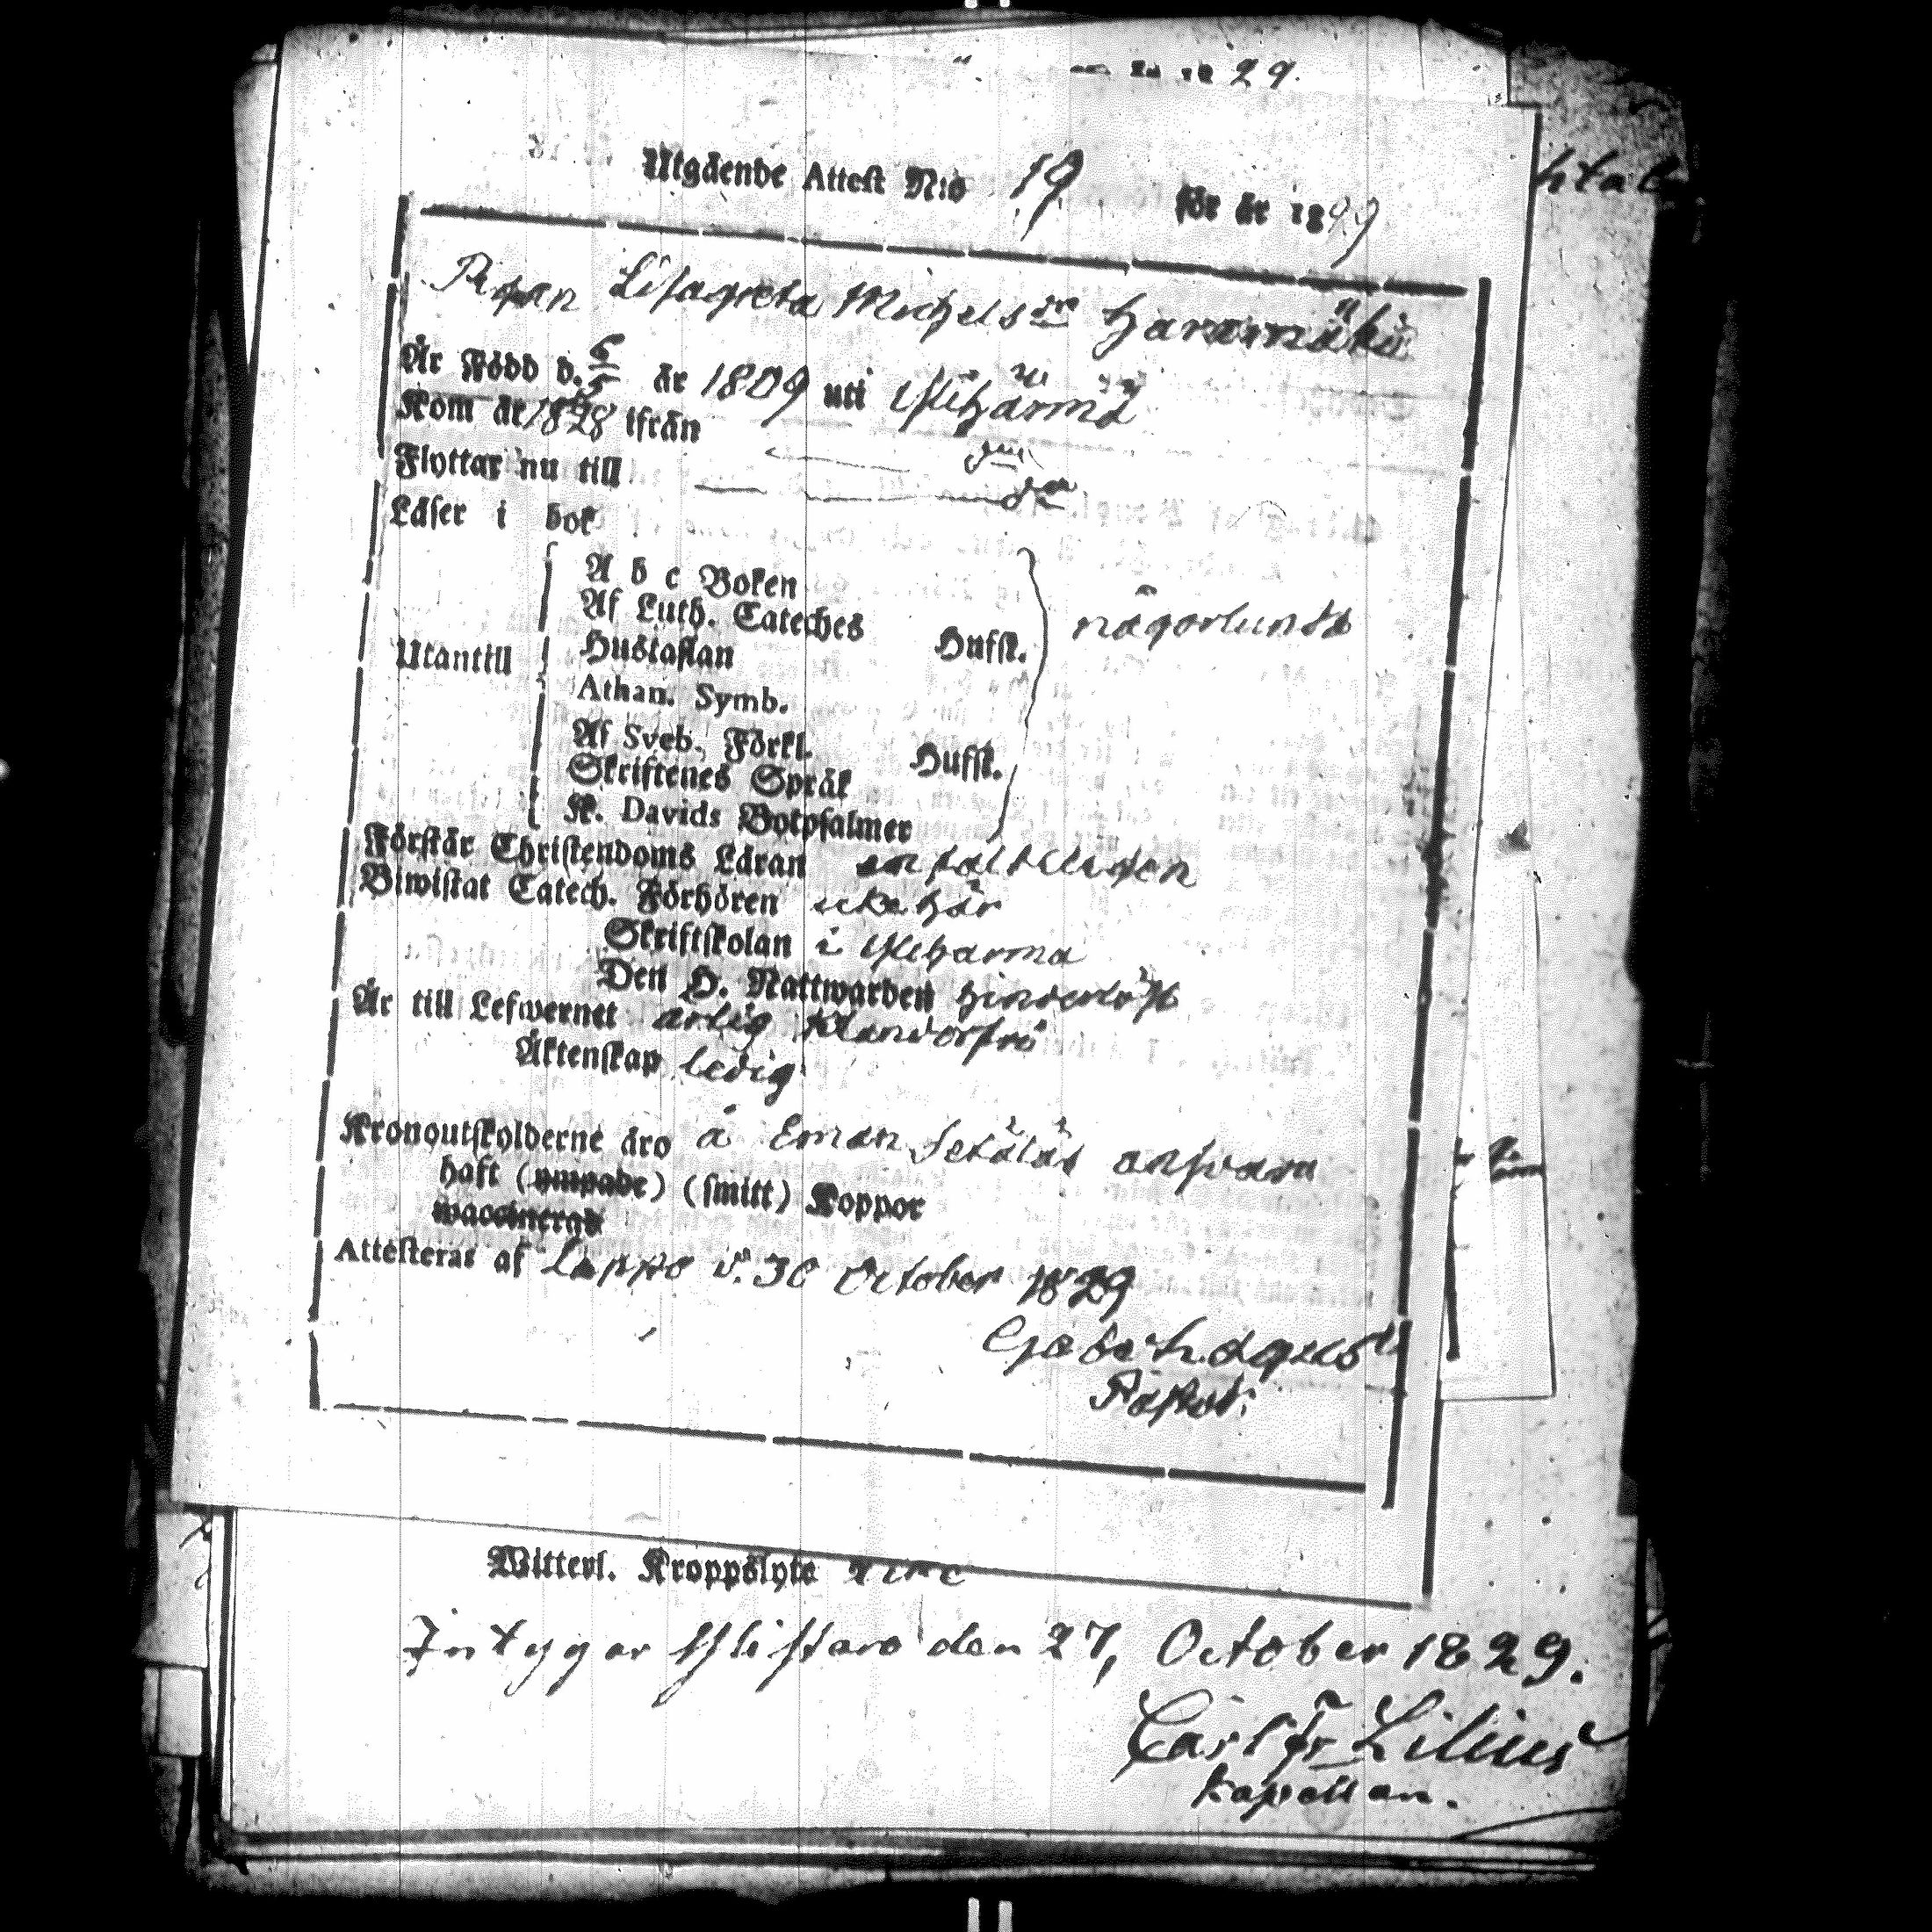 29.
Utgående Attest N:o 19 för år 1829
Pigan Lisagreta Michelsdr Harjamäki
Är Född d. 6/5 år 1809 uti Ylihärmä
Kom år 1828 ifrån
Flyttar nu till
Läser i bok
Utantill
A b c Boken
Af Luth. Cateches Hufst.
Hustaflan
Athan. Symb.
Af Sveb. Förkl. Hufst.
Skriftenes Språk
K. Davids Botpsalmer
någorlunda
Förstår Christendoms Läran enfaldeligen
Biwistat Catech. Förhören icke här
Skriftskolan i Ylihärmä
Den H. Nattwarden hinderlöst
Är till Lefwernet ärlig klanderfri
Äktenskap ledig
Kronoutskylderne äro å Eman Setäläs answar
haft (ympade) (smitt) Koppor
waccinerad
Attesteras af Lappo d. 30 October 1829
Pastor.
Witterl. Kroppslyte
Intygar Ylistaro den 27, October 1829.
Carl Fr Lilius
kapellan.